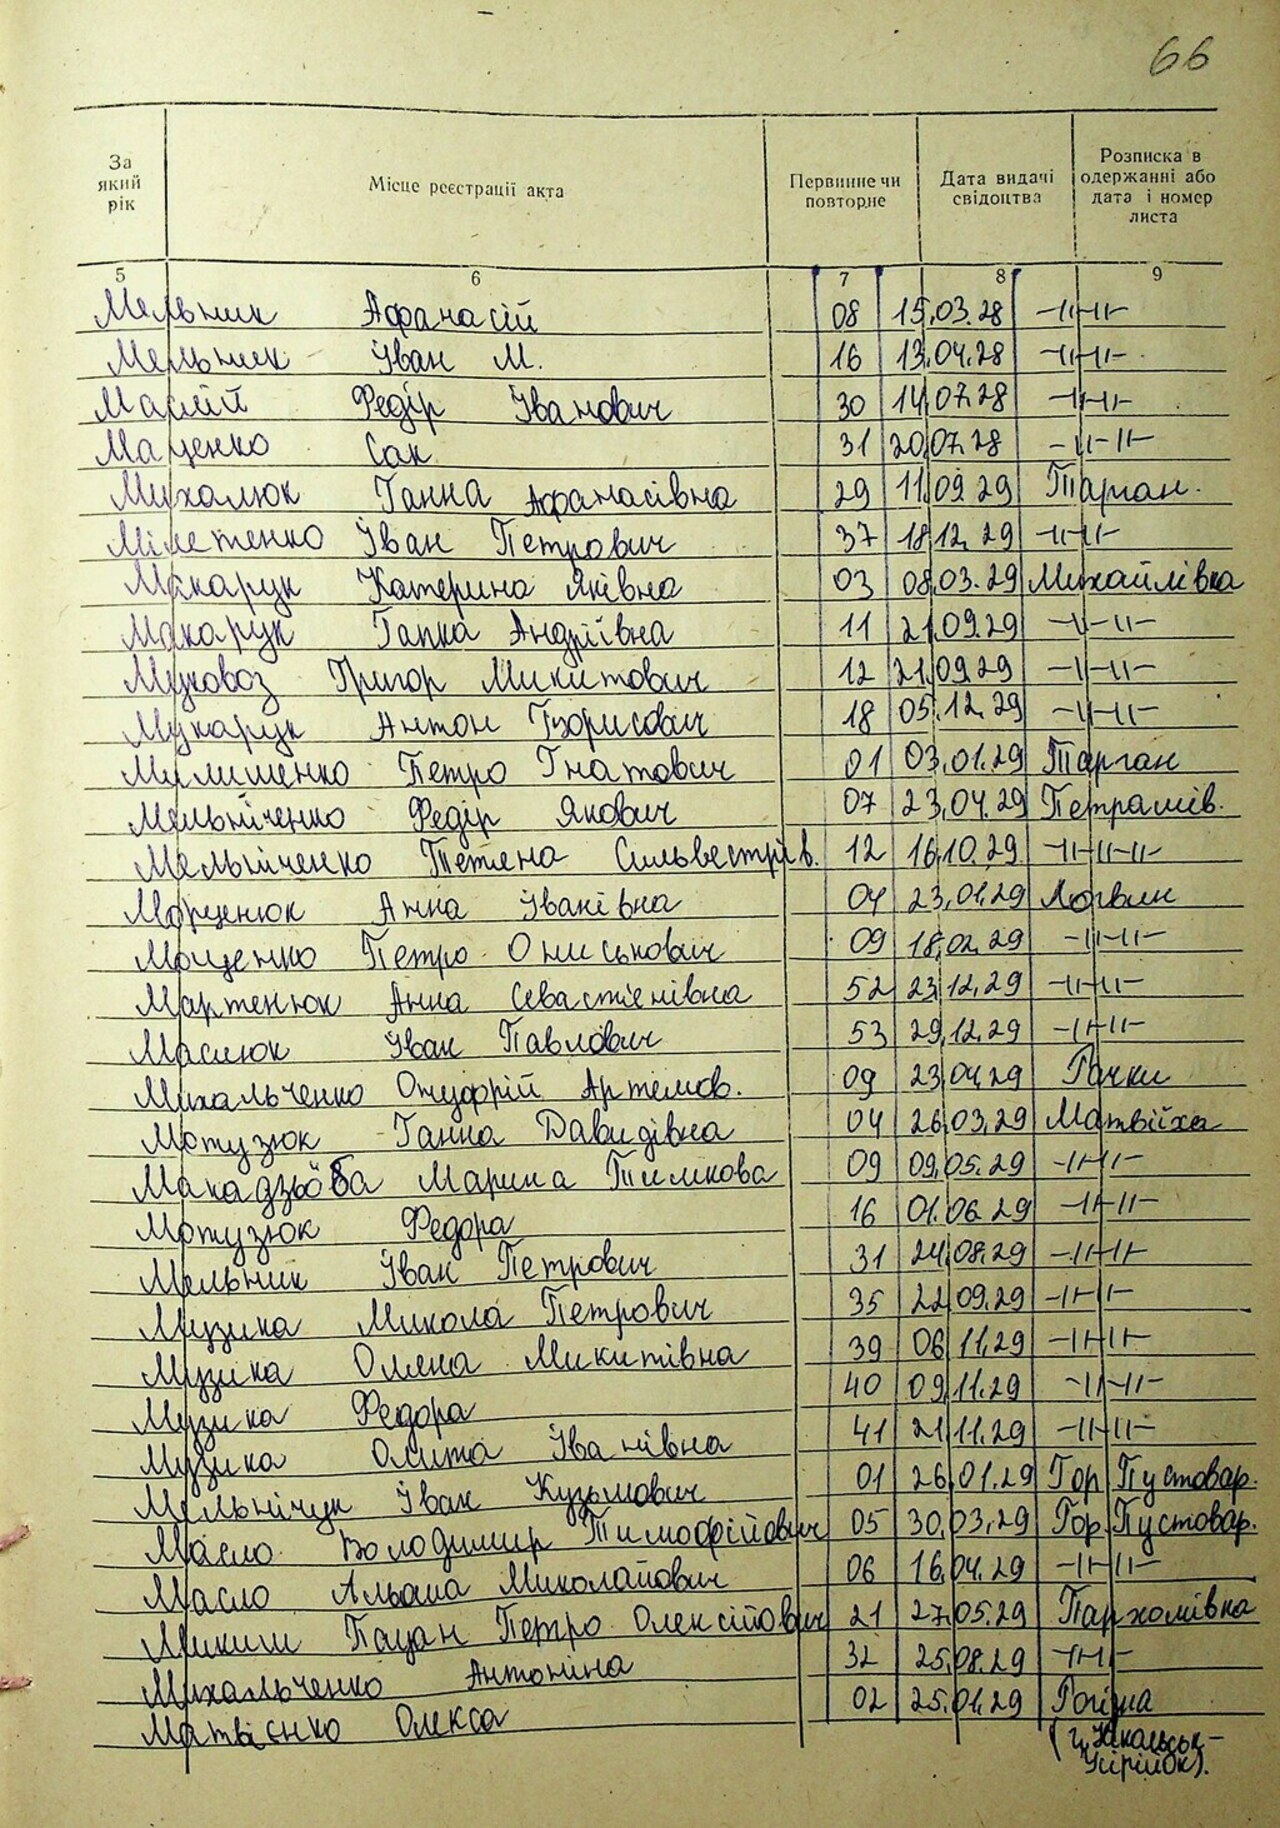 66
За який рік
Місце реєстрації акта
Первинне чи повторне
Дата видачі свідоцтва
Розписка в одержанні або дата і номер листа
5 6 7 8 9
Мельник Афанасій 08 15.03.28 -||-||-
Мельник Іван М. 16 13.04.28 -||-||-
Маслій Федір Іванович 30 14.07.28 -||-||-
Маценко Сак 31 20.07.28 -||-||-
Михалюк Ганна Афанасівна 29 11.09.29 Тарган.
Мілетенко Іван Петрович 37 18.12.29 -||-||-
Макарук Катерина Яківна 03 08.03.29 Михайлівка
Макарук Гапка Андріївна 11 21.09.29 -||-||-
Муковоз Григор Микитович 12 21.09.29 -||-||-
Мукарук Антон Борисович 18 05.12.29 -||-||-
Милишенко Петро Гнатович 01 03.01.29 Тарган
Мельніченко Федір Якович 07 23.04.29 Петрашів.
Мельніченко Тетяна Сильвестрів. 12 16.10.29 -||-||-||-
Марценюк Анна Іванівна 04 23.01.29 Логвин
Моценко Петро Ониськович 09 18.02.29 -||-||-
Мартенюк Анна Севастіенівна 52 23.12.29 -||-||-
Маслюк Іван Павлович 53 29.12.29 -||-||-
Михальченко Онуфрій Артемов. 09 23.04.29 Рачки
Мотузюк Ганна Давидівна 04 26.03.29 Матвійха
Макадзьоба Марина Тимкова 09 09.05.29 -||-||-
Мотузюк Федора 16 01.06.29 -||-||-
Мельник Іван Петрович 31 24.08.29 -||-||-
Музика Микола Петрович 35 22.09.29 -||-||-
Музика Олена Микитівна 39 06.11.29 -||-||-
Музика Федора 40 09.11.29 -||-||-
Музика Олита Іванівна 41 21.11.29 -||-||-
Мельнічук Іван Кузьмович 01 26.01.29 Гор Пустовар.
Масло Володимир Тимофійович 05 30.03.29 Гор. Пустовар.
Масло Альоша Миколайович 06 16.04.29 -||-||-
Микиш Пацан Петро Олексійович 21 27.05.29 Пархомівка
Михальченко Антоніна 32 25.08.29 -||-||-
Матвієнко Олекса 02 25.01.29 Рогізна